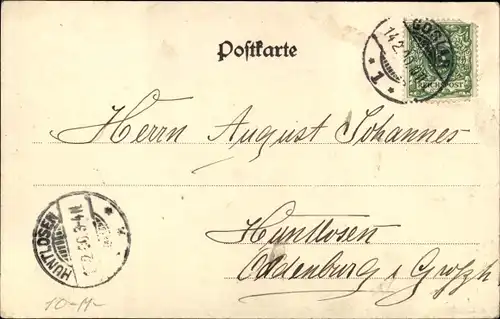 Postkarte
GOSLAR
14.2.
* 1 *
REICHSPOST
Herrn August Johannes
Huntlosen
Oldenburg i Grossh
HUNTLOSEN
10-M-